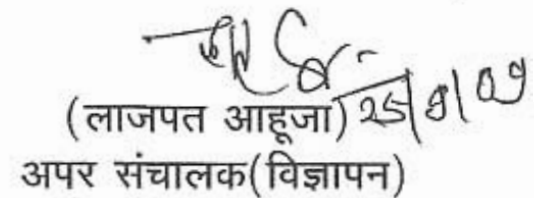 (लाजपत आहूजा) 25/8/09
अपर संचालक(विज्ञापन)